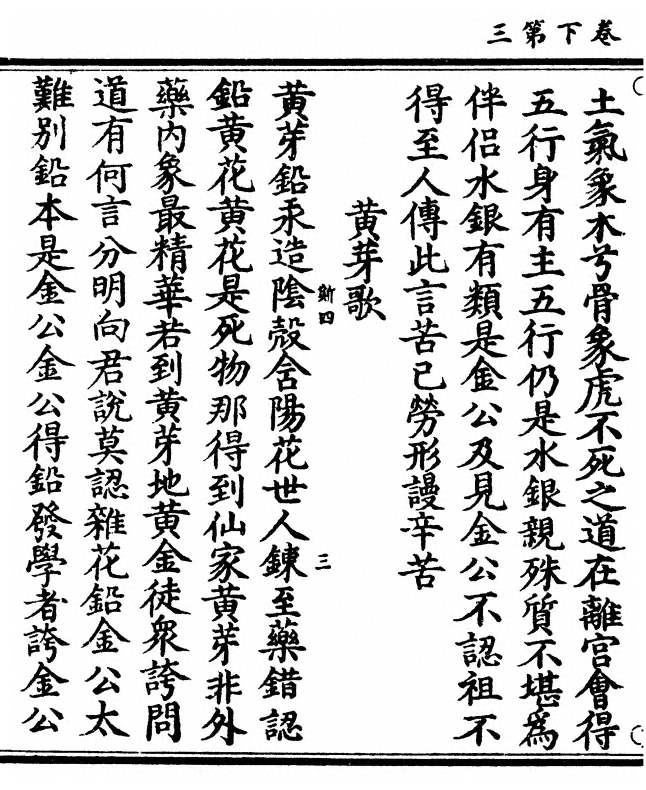 卷下第三
土氣象木兮骨象虎不死之道在離宮會得
五行身有主五行仍是水銀親殊質不堪為
伴侶水銀有類是金公及見金公不認祖不
得至人傳此言苦已勞形謾辛苦
黃芽歌
斷四
三
黃芽鉛汞造陰殼含陽花世人鍊至藥錯認
鉛黃花黃花是死物那得到仙家黃芽非外
藥內象最精華若到黃芽地黃金徒衆誇問
道有何言分明向君說莫認雜花鉛金公太
難別鉛本是金公金公得鉛發學者誇金公